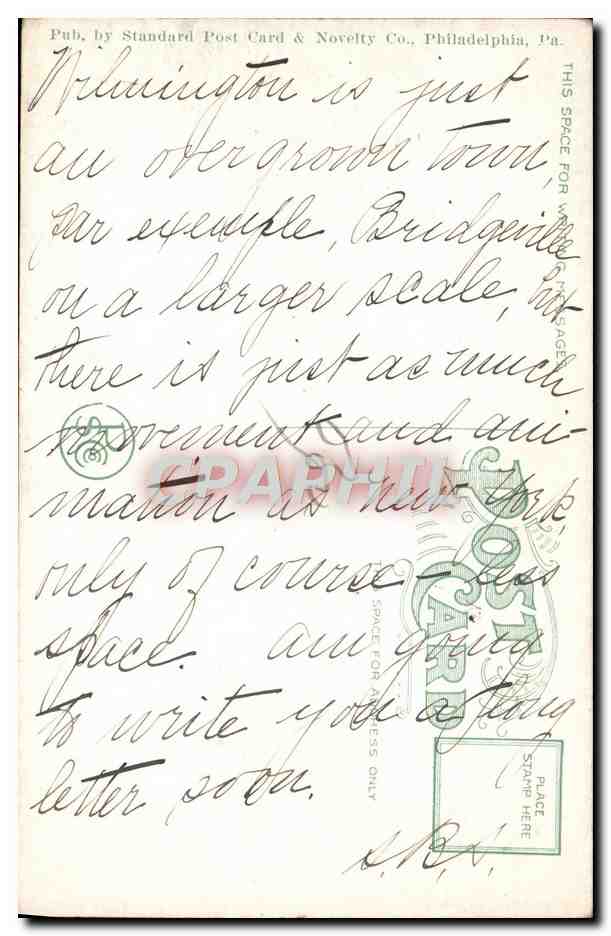 Pub. by Standard Post Card & Novelty Co., Philadelphia, Pa.
Wilmington is just
an overgrown town,
par exemple, Bridgeville
on a larger scale, but
there is just as much
movement and ani-
mation as New York,
only of course - less
space. Am going
to write you a long
letter soon.
S.B.S.
THIS SPACE FOR WRITING MESSAGES
POST CARD
THIS SPACE FOR ADDRESS ONLY
PLACE
STAMP HERE
CPARPHIL